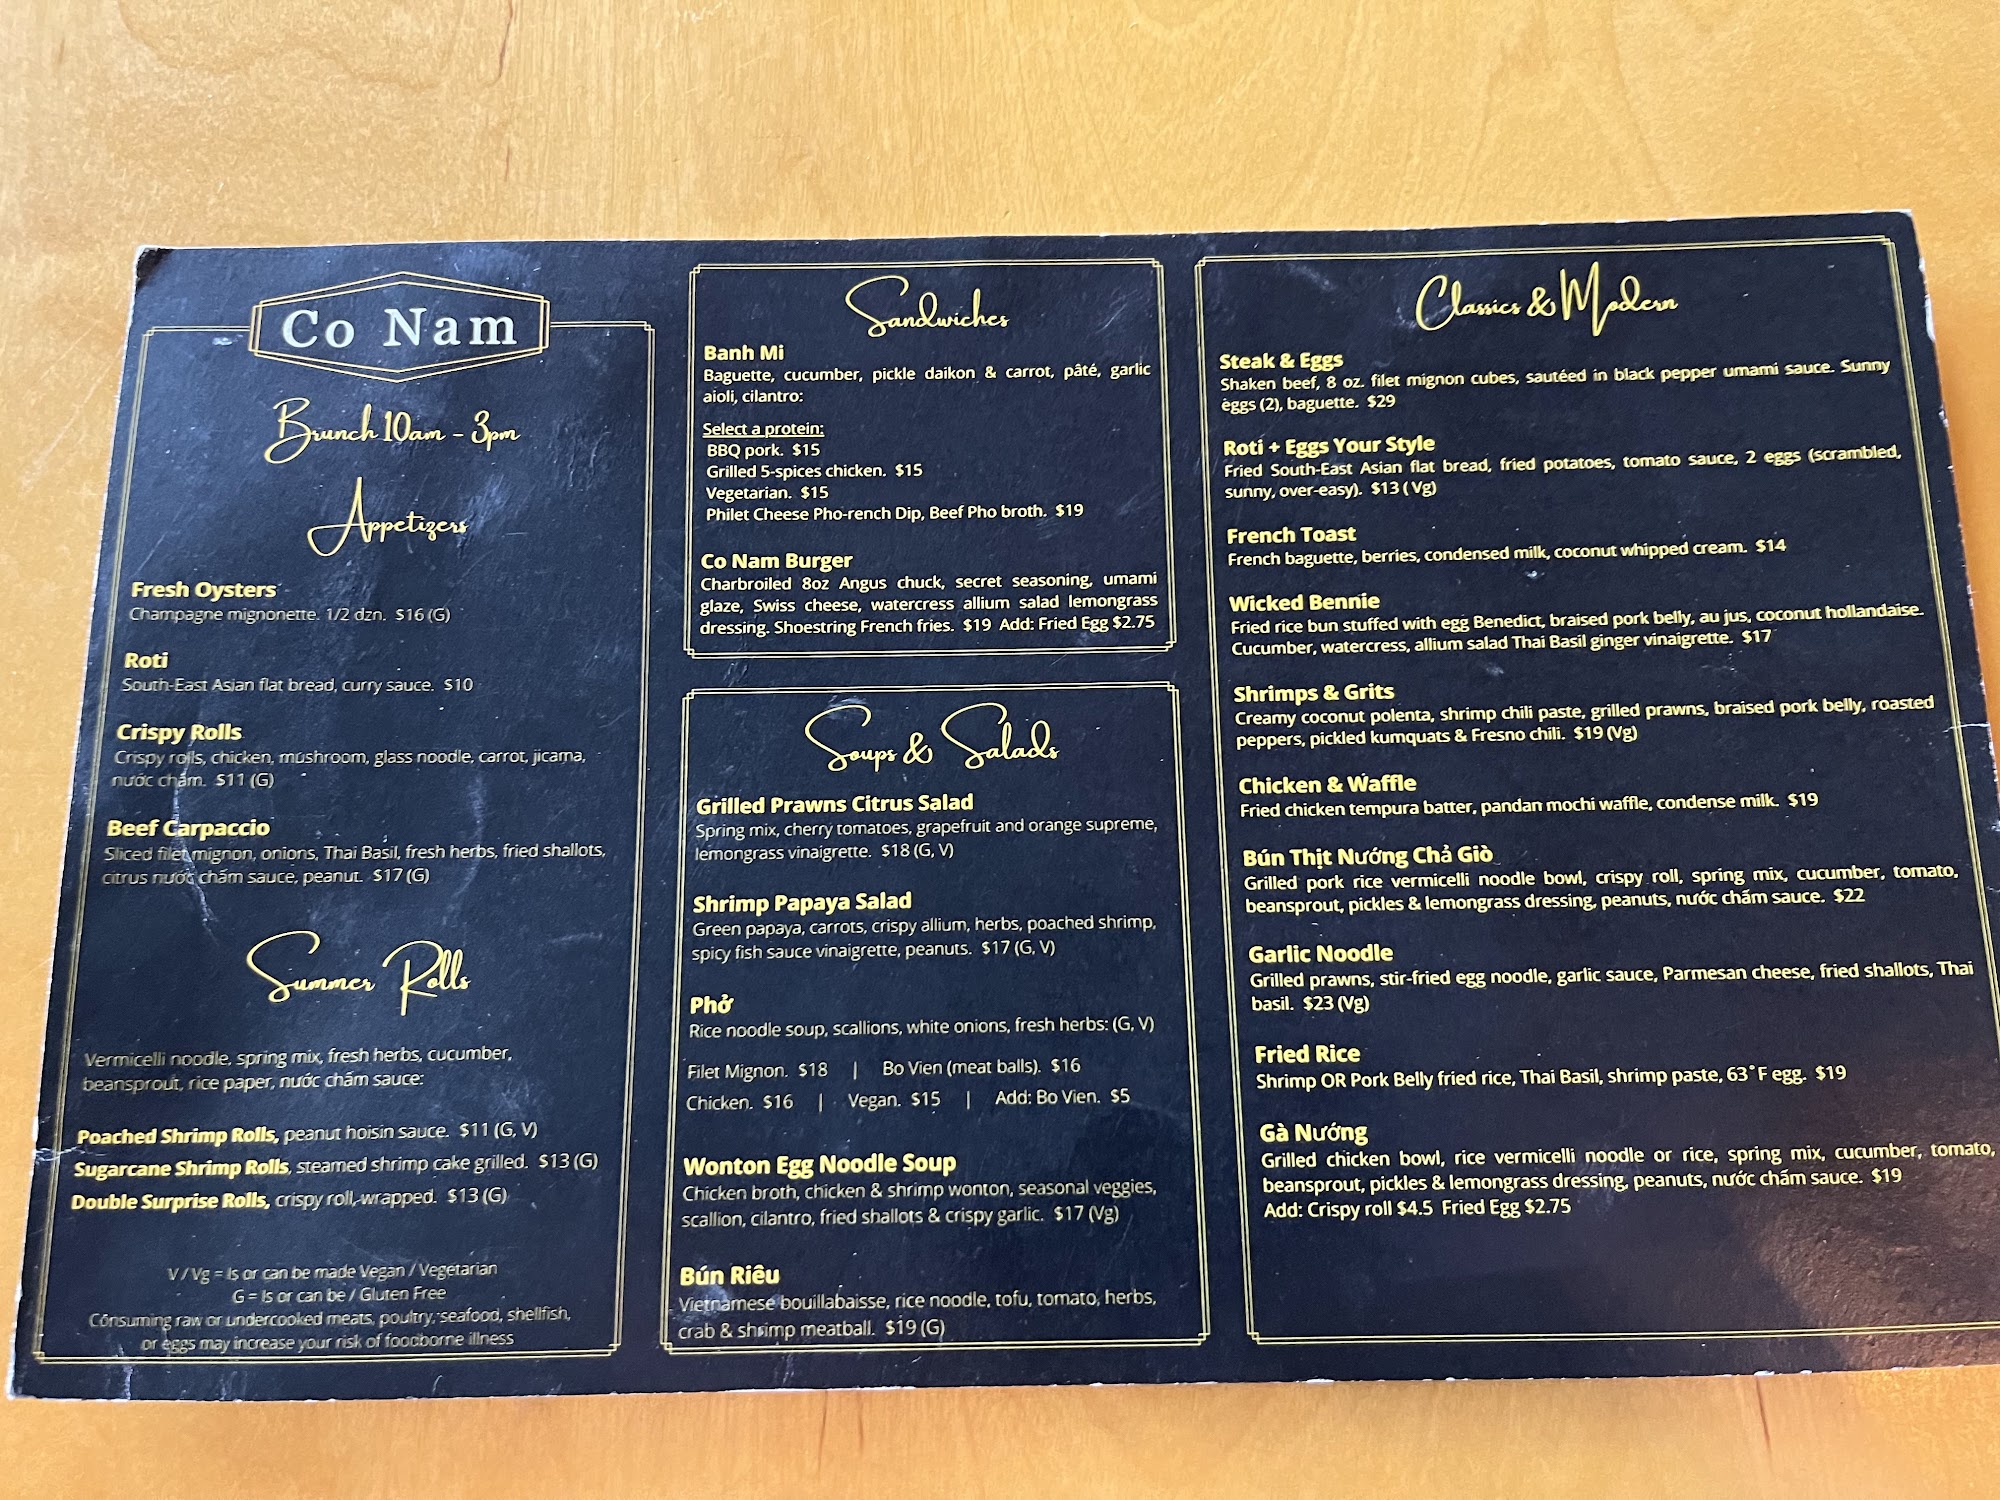 Co Nam
Brunch 10am - 3pm
Appetizers
Fresh Oysters
Champagne mignonette. 1/2 dzn. $16 (G)
Roti
South-East Asian flat bread, curry sauce. $10
Crispy Rolls
Crispy rolls, chicken, mushroom, glass noodle, carrot, jicama,
nước chấm. $11 (G)
Beef Carpaccio
Sliced filet mignon, onions, Thai Basil, fresh herbs, fried shallots,
citrus nước chấm sauce, peanut. $17 (G)
Summer Rolls
Vermicelli noodle, spring mix, fresh herbs, cucumber,
beansprout, rice paper, nước chấm sauce:
Poached Shrimp Rolls, peanut hoisin sauce. $11 (G, V)
Sugarcane Shrimp Rolls, steamed shrimp cake grilled. $13 (G)
Double Surprise Rolls, crispy roll, wrapped. $13 (G)
V / Vg = Is or can be made Vegan / Vegetarian
G = Is or can be / Gluten Free
Consuming raw or undercooked meats, poultry, seafood, shellfish,
or eggs may increase your risk of foodborne illness
Sandwiches
Banh Mi
Baguette, cucumber, pickle daikon & carrot, pâté, garlic
aioli, cilantro:
Select a protein:
BBQ pork. $15
Grilled 5-spices chicken. $15
Vegetarian. $15
Philet Cheese Pho-rench Dip, Beef Pho broth. $19
Co Nam Burger
Charbroiled 8oz Angus chuck, secret seasoning, umami
glaze, Swiss cheese, watercress allium salad lemongrass
dressing. Shoestring French fries. $19 Add: Fried Egg $2.75
Soups & Salads
Grilled Prawns Citrus Salad
Spring mix, cherry tomatoes, grapefruit and orange supreme,
lemongrass vinaigrette. $18 (G, V)
Shrimp Papaya Salad
Green papaya, carrots, crispy allium, herbs, poached shrimp,
spicy fish sauce vinaigrette, peanuts. $17 (G, V)
Phở
Rice noodle soup, scallions, white onions, fresh herbs: (G, V)
Filet Mignon. $18 | Bo Vien (meat balls). $16
Chicken. $16 | Vegan. $15 | Add: Bo Vien. $5
Wonton Egg Noodle Soup
Chicken broth, chicken & shrimp wonton, seasonal veggies,
scallion, cilantro, fried shallots & crispy garlic. $17 (Vg)
Bún Riêu
Vietnamese bouillabaisse, rice noodle, tofu, tomato, herbs,
crab & shrimp meatball. $19 (G)
Classics & Modern
Steak & Eggs
Shaken beef, 8 oz. filet mignon cubes, sautéed in black pepper umami sauce. Sunny
eggs (2), baguette. $29
Roti + Eggs Your Style
Fried South-East Asian flat bread, fried potatoes, tomato sauce, 2 eggs (scrambled,
sunny, over-easy). $13 ( Vg)
French Toast
French baguette, berries, condensed milk, coconut whipped cream. $14
Wicked Bennie
Fried rice bun stuffed with egg Benedict, braised pork belly, au jus, coconut hollandaise.
Cucumber, watercress, allium salad Thai Basil ginger vinaigrette. $17
Shrimps & Grits
Creamy coconut polenta, shrimp chili paste, grilled prawns, braised pork belly, roasted
peppers, pickled kumquats & Fresno chili. $19 (Vg)
Chicken & Waffle
Fried chicken tempura batter, pandan mochi waffle, condense milk. $19
Bún Thịt Nướng Chả Giò
Grilled pork rice vermicelli noodle bowl, crispy roll, spring mix, cucumber, tomato,
beansprout, pickles & lemongrass dressing, peanuts, nước chấm sauce. $22
Garlic Noodle
Grilled prawns, stir-fried egg noodle, garlic sauce, Parmesan cheese, fried shallots, Thai
basil. $23 (Vg)
Fried Rice
Shrimp OR Pork Belly fried rice, Thai Basil, shrimp paste, 63˚F egg. $19
Gà Nướng
Grilled chicken bowl, rice vermicelli noodle or rice, spring mix, cucumber, tomato,
beansprout, pickles & lemongrass dressing, peanuts, nước chấm sauce. $19
Add: Crispy roll $4.5 Fried Egg $2.75